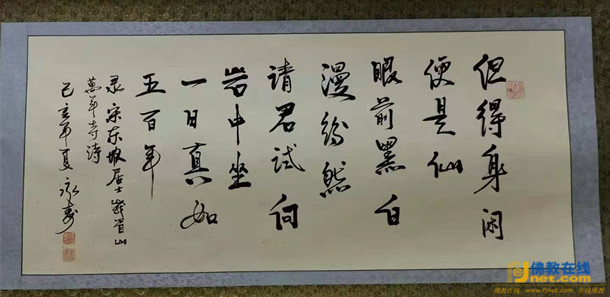 但得身闲
便是仙
眼前黑白
漫纷然
请君试向
岩中坐
一日真如
五百年
录宋东坡居士峨眉山
萬年寺诗
己亥年夏 永寿
佛教在线
Fjnet.com